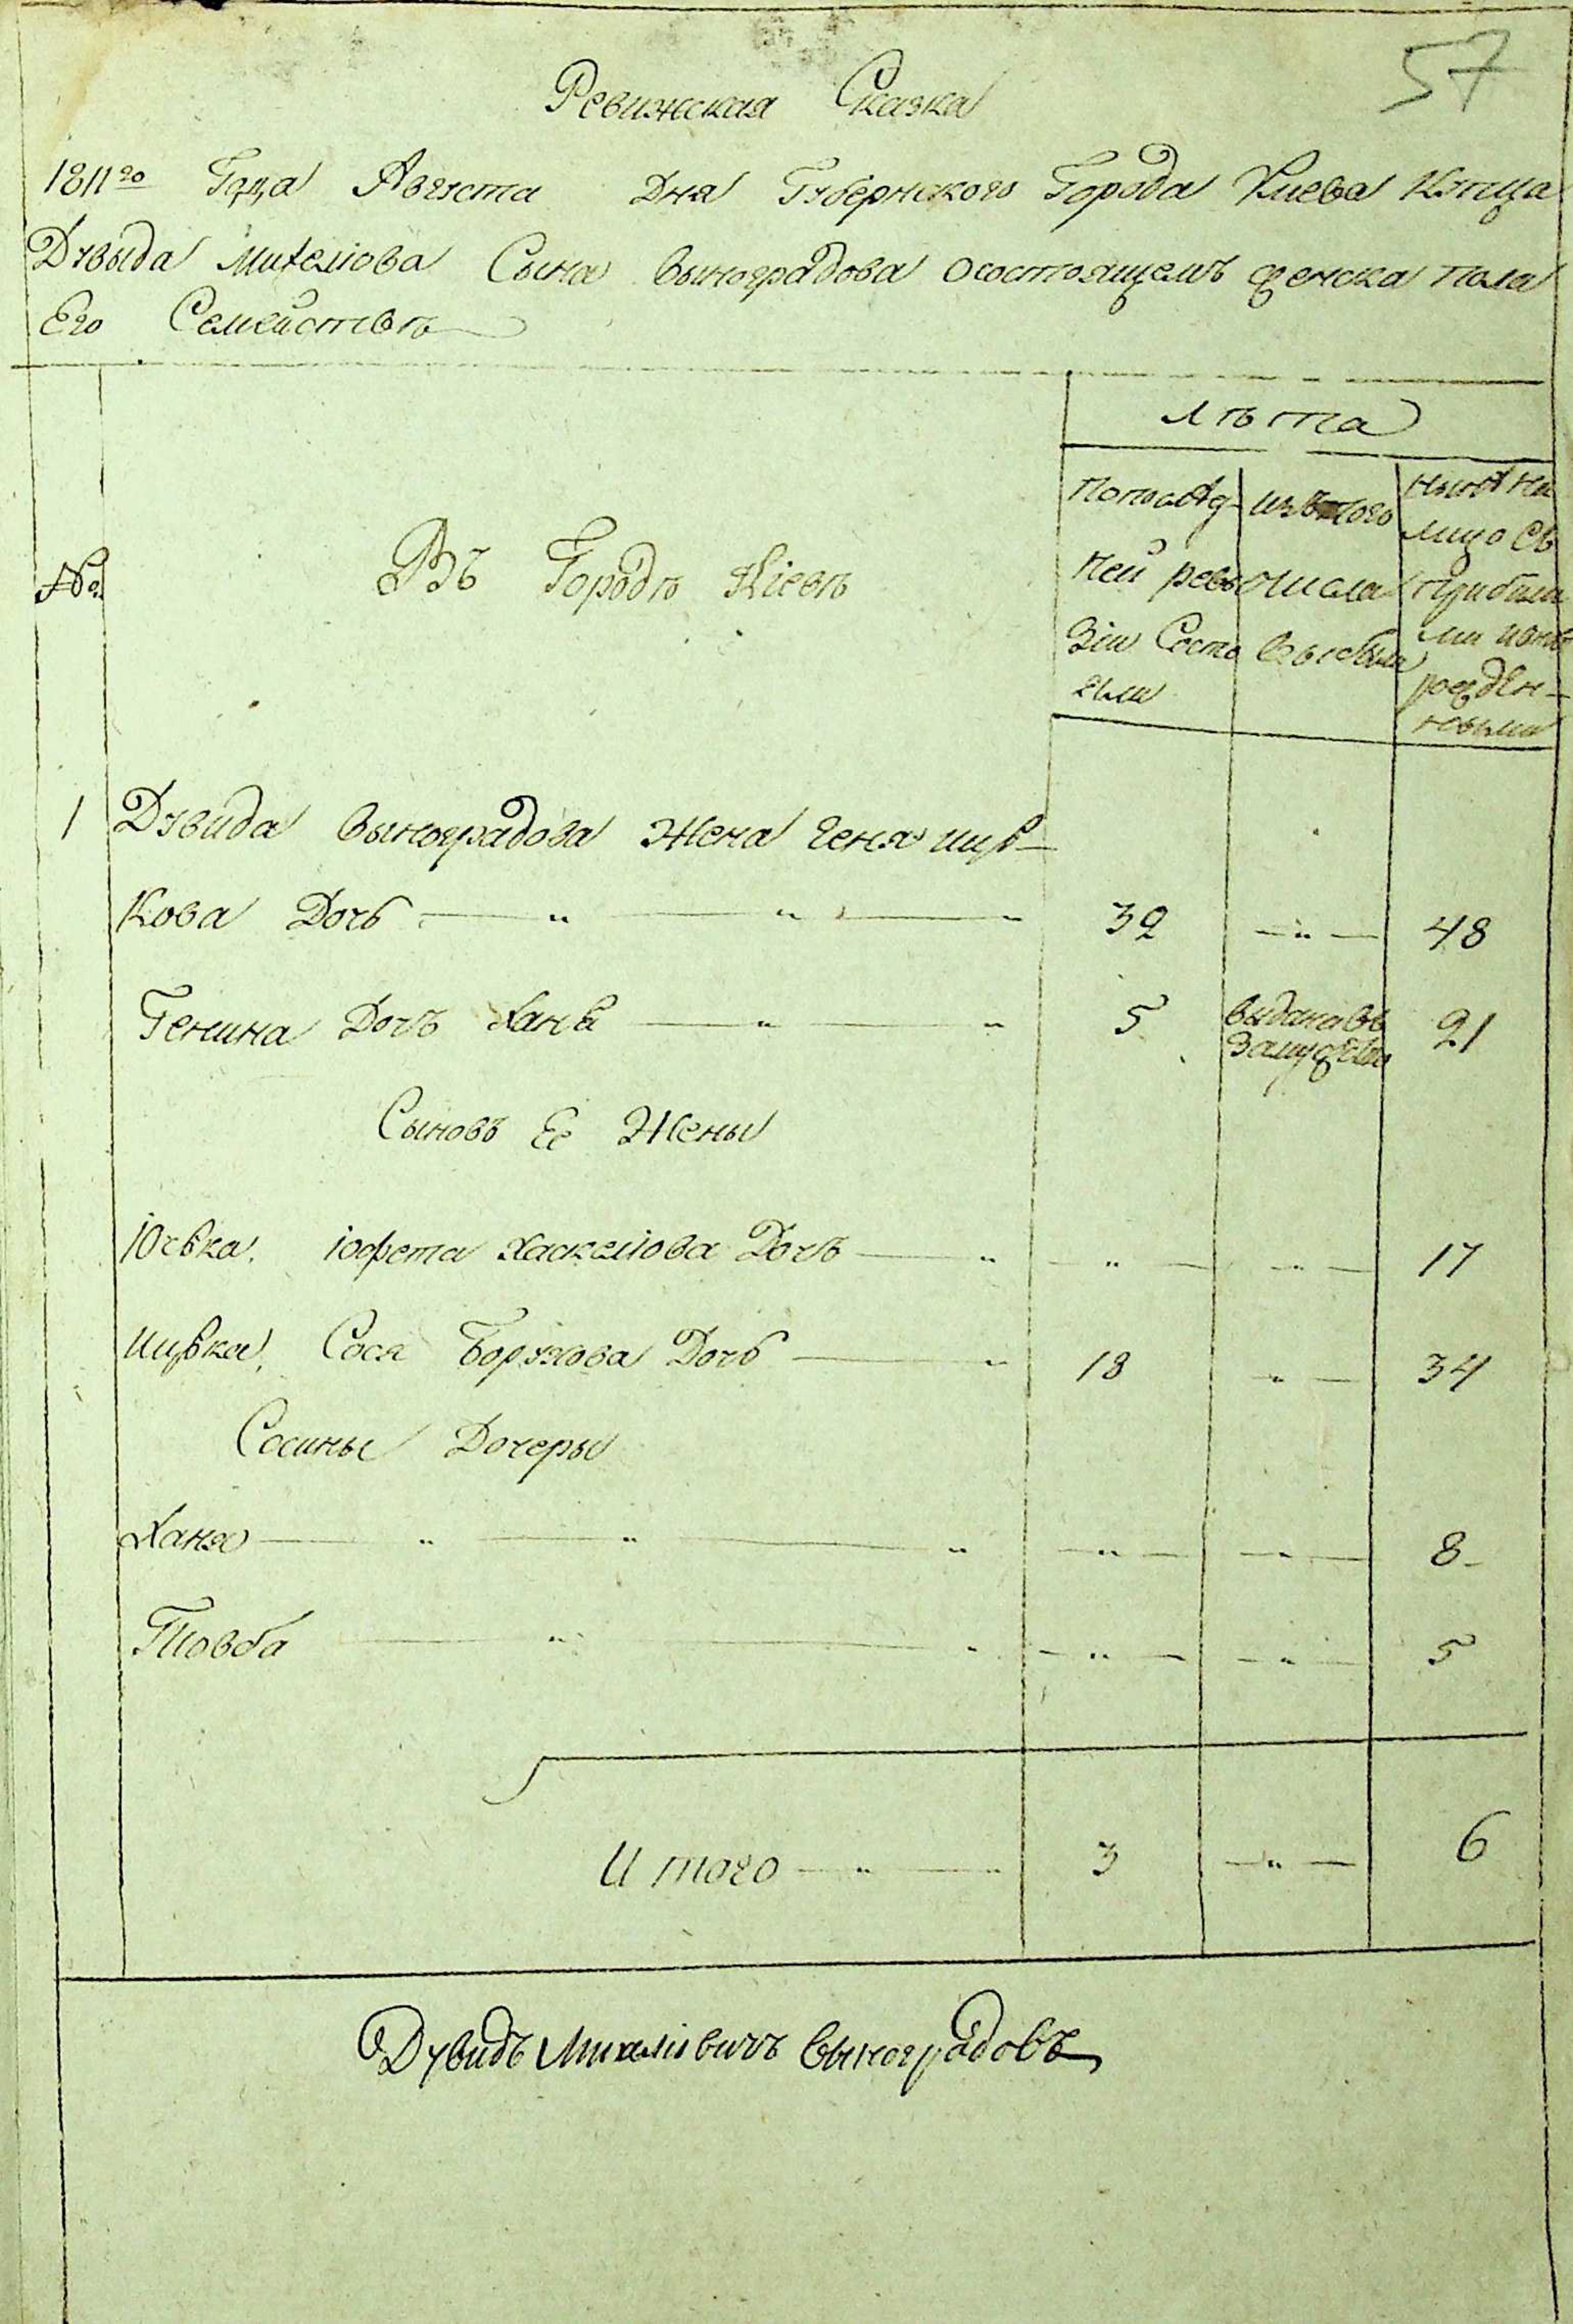 57
Ревижская Сказка
1811го Года Августа Дня Губернского Города Киева Купца
Дувыда Михелюва Сына Выноградова о состоящемъ женска пола
Его Семействѣ
№
Въ Городѣ Кіевѣ
Лѣта
по послѣд-
ней реви
зіи состо
яли
изъ того
числа
выбыли
нынѣ на
лицо съ
прибылы
ми и внов
рожден-
ными
1 Дувида Выноградова Жена Геня ицъ-
кова Дочь — " — " — " 32 — " — 48
Генина Дочъ Ханя — " — " 5 выдана въ замужство 21
Сыновъ Ее Жены
Юсвка. іофета Хаскелюва Дочъ — " — " — — " — 17
Ицька. Сося Борухова Дочь — " 18 " — 34
Сосины Дочеры
Ханя — " — " — " — " — — " — 8
Товба — " — " — " — — " — 5
Итого — " — " 3 — " — 6
Дувидъ Михелювичъ Выноградовъ